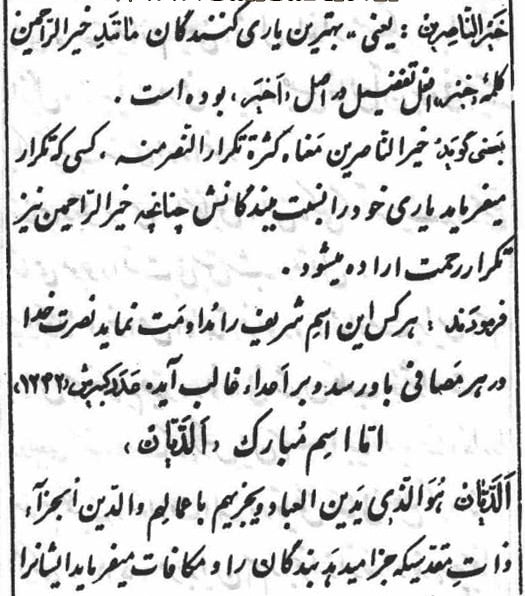 خَیْرُالنّاصِرین : یعنی ، بهترین یاری کنندگان مانند خیرالرّاحمین
کلمهٔ خیر، افعل تفضیل در اصل ، اَخْیَر ، بوده است .
بعضی گویند: خیرالنّاصرین مَعناه کثرة تکرار النّصر منه ، کسی که تکرار
میفرماید یاری خود را نسبت ببندگانش چنانچه خیرالرّاحمین نیز
تکرار رحمت اراده میشود .
فرمودند : هرکس این اسم شریف را مُداومَت نماید نصرت خدا
در هر مَصافی باو رسد و بر اعداء غالب آید، عدد کبیرش (۱۳۴۲)
امّا اسم مُبارک ، اَلدَّیّان ،
اَلدَّیّان هُوَ الّذی یَدین العباد و یجزیهم باعمالهم والدّین الجزآء
ذات مقدّسیکه جزا میدهد بندگان را و مکافات میفرماید ایشانرا